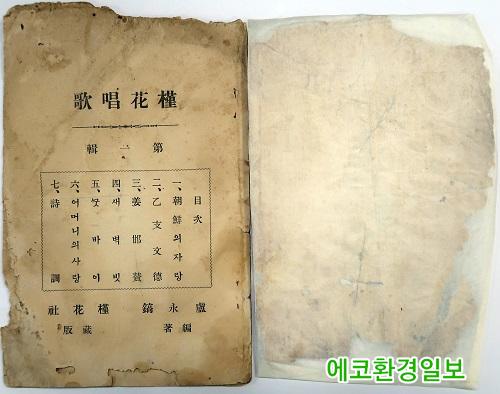 槿花唱歌
第一輯
目次
一、朝鮮의자랑
二、乙支文德
三、姜邯贊
四、새벽빗
五、바이
六、어머니의사랑
七、詩調
盧永鎬 編著
槿花社 藏版
에코환경일보